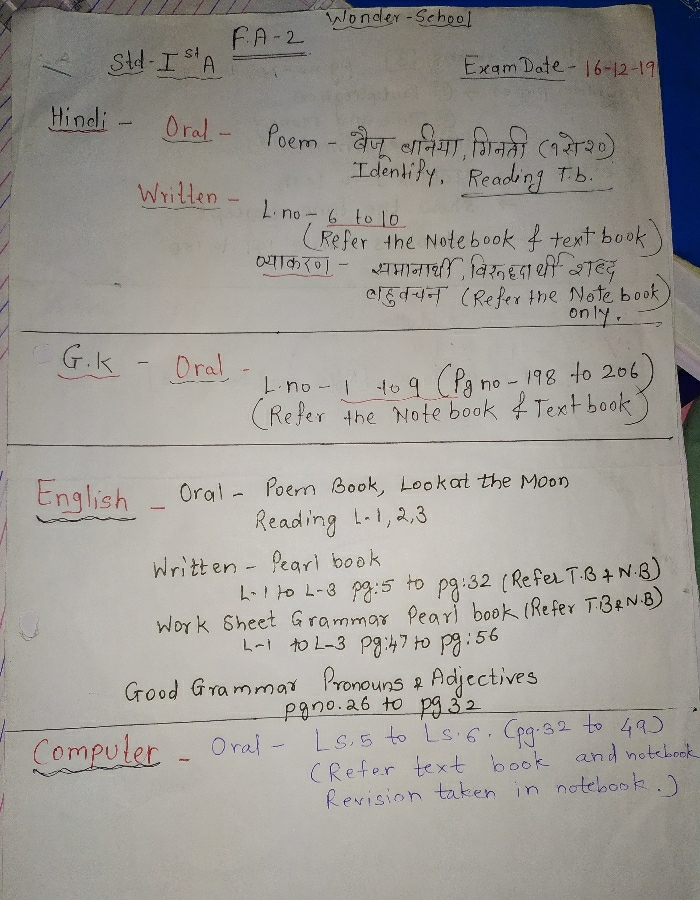 Wonder-School
F.A-2
Std- I st A
Exam Date - 16-12-19
Hindi - Oral - Poem - बैजू बनिया, गिनती (१से२०)
Identify, Reading T.b.
Written - L.no - 6 to 10
(Refer the Notebook & text book)
व्याकरण - समानार्थी, विरुद्धार्थी शब्द
बहुवचन (Refer the Note book)
only.
G.k - Oral -
L.no - 1 to 9 (Pg no - 198 to 206)
(Refer the Note book & Text book)
English - Oral - Poem Book, Look at the Moon
Reading L-1,2,3
Written - Pearl book
L-1 to L-3 pg:5 to pg:32 (Refer T.B & N.B)
Work Sheet Grammar Pearl book (Refer T.B & N.B)
L-1 to L-3 Pg:47 to pg:56
Good Grammar Pronouns & Adjectives
pg no. 26 to pg 32
Computer - Oral - Ls.5 to Ls.6. (pg.32 to 49)
(Refer text book and notebook
Revision taken in notebook.)